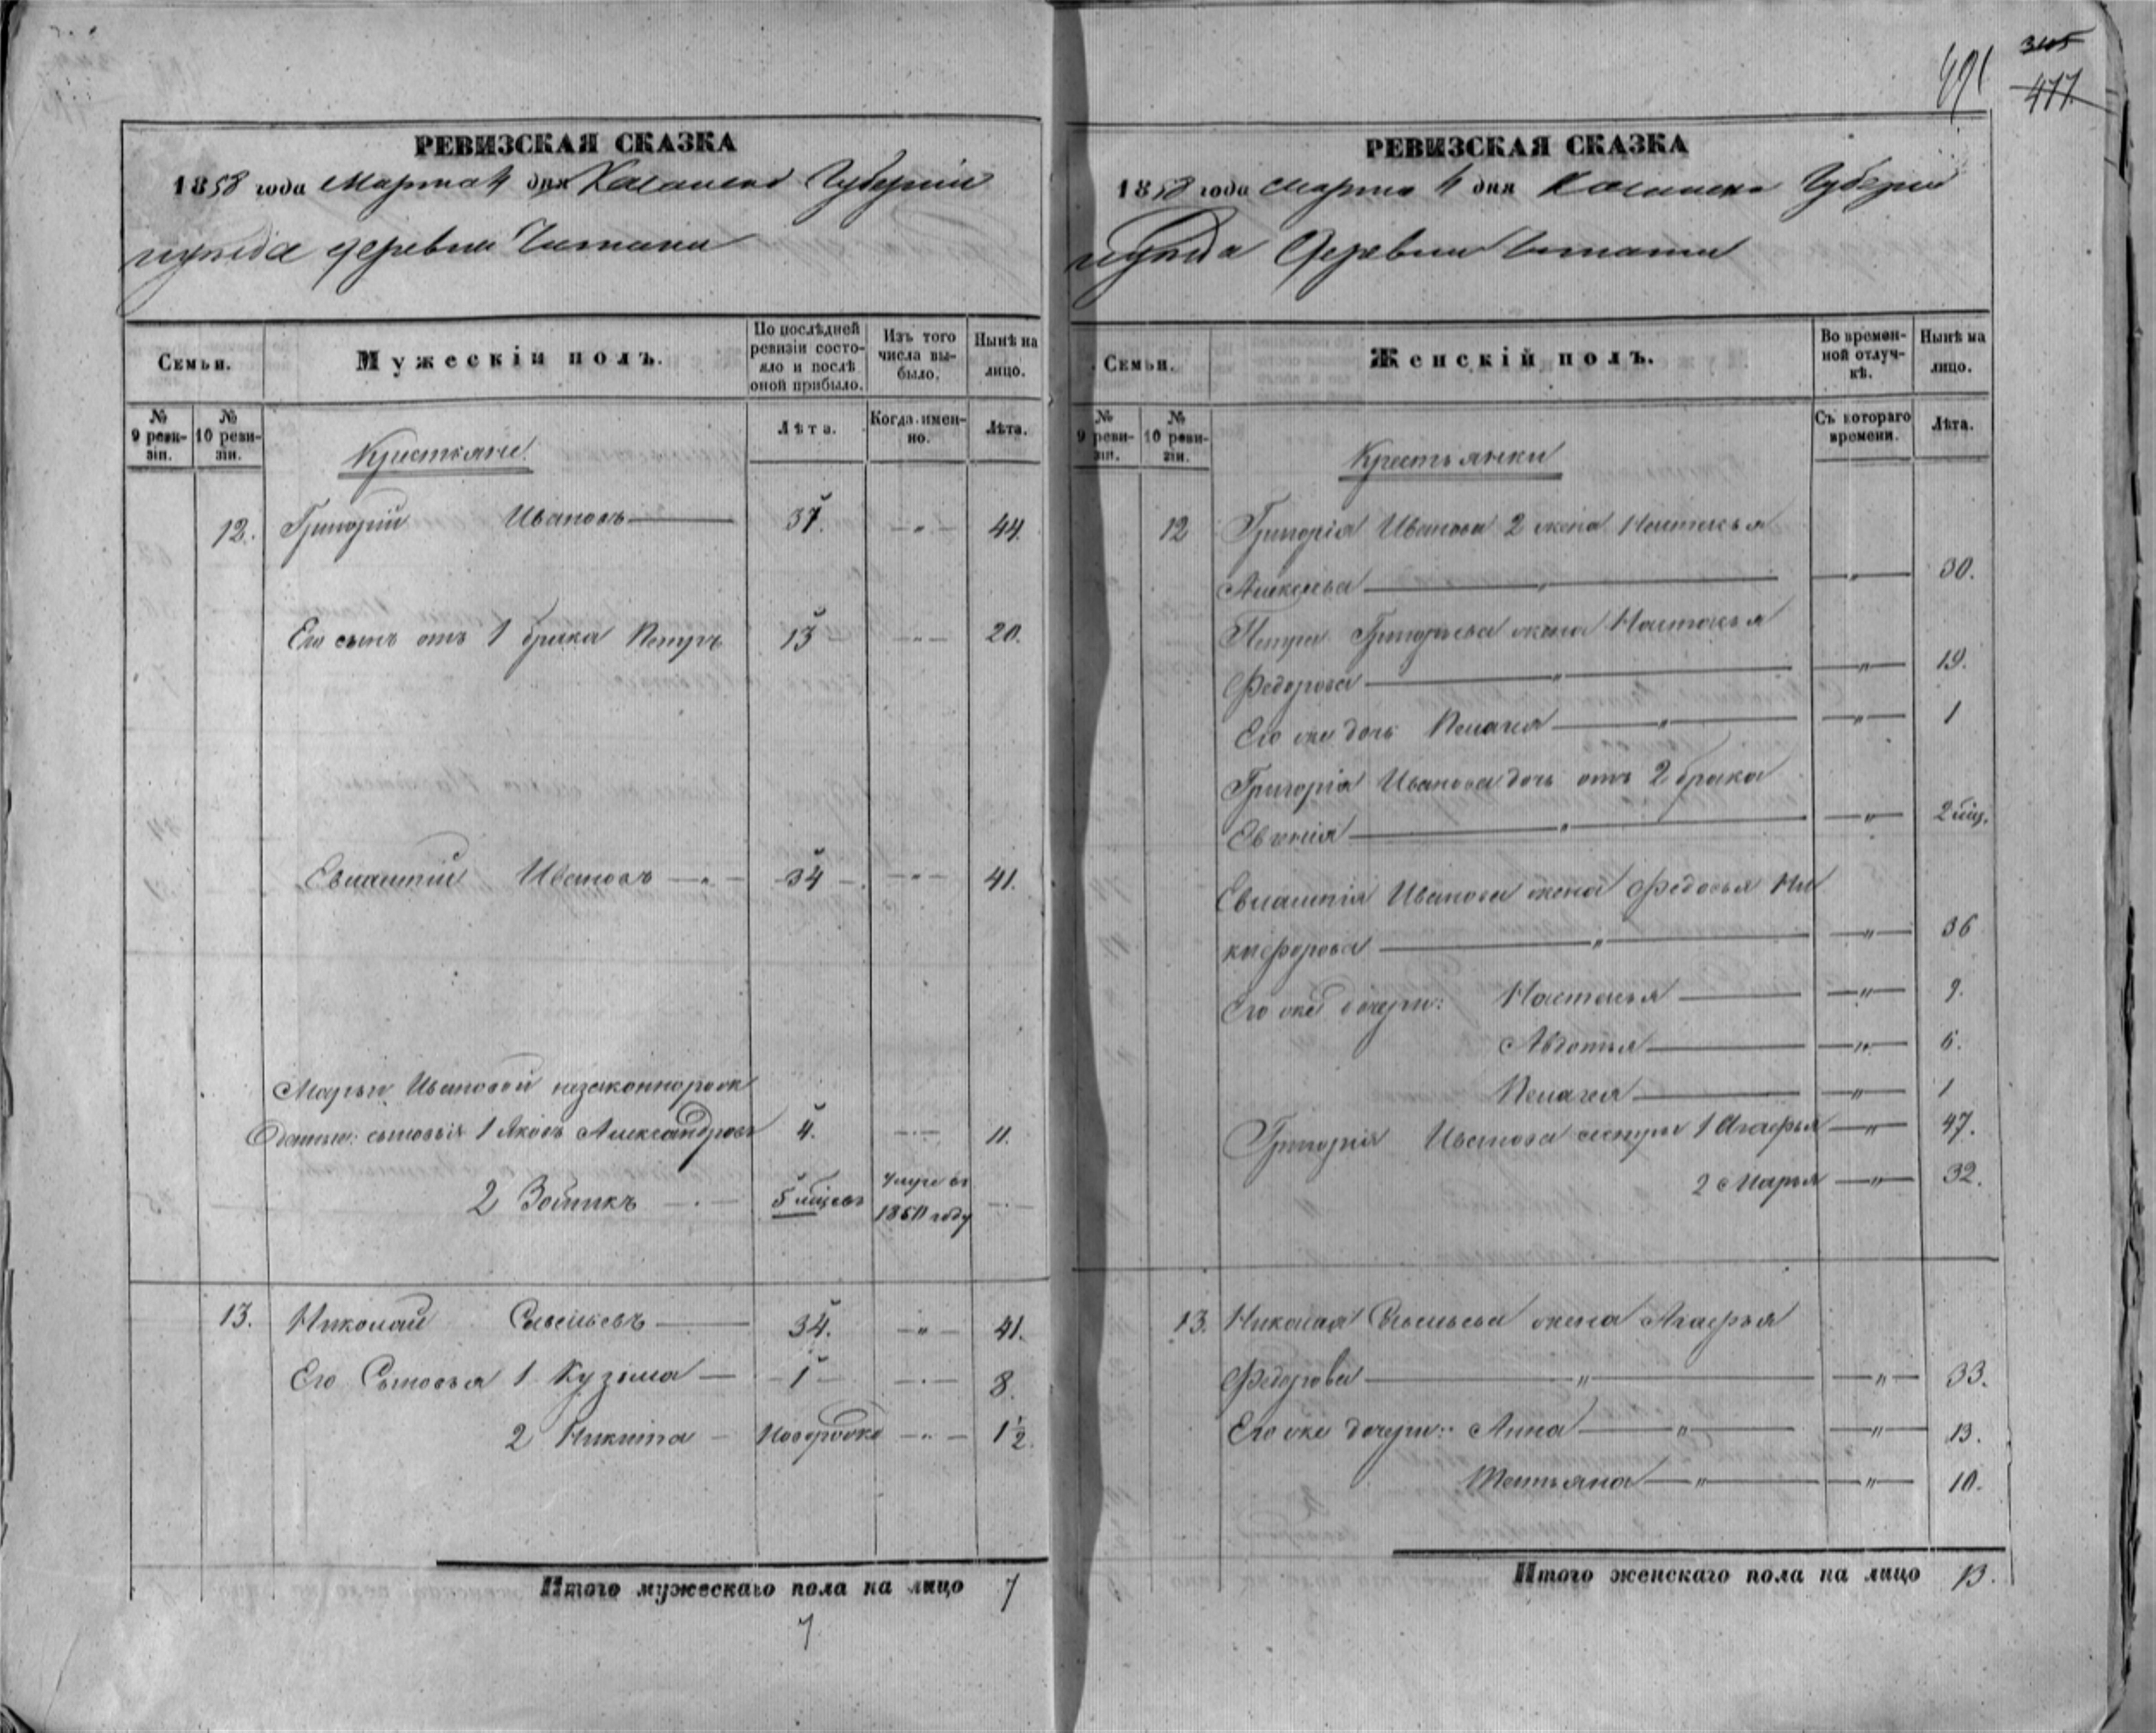 491
345
477
РЕВИЗСКАЯ СКАЗКА
1858 года Марта 4 дня Казанской Губерніи
уѣзда деревни
Семьи.
Мужескій полъ.
По послѣдней ревизіи состояло и послѣ оной прибыло.
Изъ того числа выбыло.
Нынѣ на лицо.
№ 9 ревизіи.
№ 10 ревизіи.
Лѣта.
Когда именно.
Лѣта.
Крестьяне
12. Григорій Ивановъ 37. — " — 44.
Его сынъ отъ 1 брака Петръ 13 — " — 20.
Евлампій Ивановъ — " — 34 — " — 41.
Марьи Ивановой незаконнорож
денные: сыновья 1 Яковъ Александровъ 4. — " — 11.
2 Зотикъ — " — 5 мѣсевъ умре въ 1850 году — " —
13. Николай Савельевъ 34. — " — 41.
Его Сыновья 1 Кузьма — 1 — " — 8.
2 Никита — новорожд — " — 1½.
Итого мужескаго пола на лицо 7
7
РЕВИЗСКАЯ СКАЗКА
1858 года Марта 4 дня Казанской Губерніи
уѣзда Деревни
Семьи.
Женскій полъ.
Во временной отлучкѣ.
Нынѣ на лицо.
№ 9 ревизіи.
№ 10 ревизіи.
Съ котораго времени.
Лѣта.
Крестьянки
12 Григорія Иванова 2 жена Настасья
Алексѣева — " — — " — 30.
Петра Григорьева жена Настасья
Федорова — " — — " — 19.
Его же дочь Пелагея — " — — " — 1
Григорія Иванова дочь отъ 2 брака
Евгенія — " — — " — 2 мѣц.
Евлампія Иванова жена Федосья Ни
кифорова — " — — " — 36
Его же дочери: Настасья — " — 9.
Авдотья — " — 6.
Пелагея — " — 1
Григорія Иванова сестры 1 Агафья — " — 47.
2 Марья — " — 32.
13. Николая Савельева жена Агафья
Федорова — " — — " — 33.
Его же дочери: Анна — " — — " — 13.
Татьяна — " — — " — 10.
Итого женскаго пола на лицо 13.